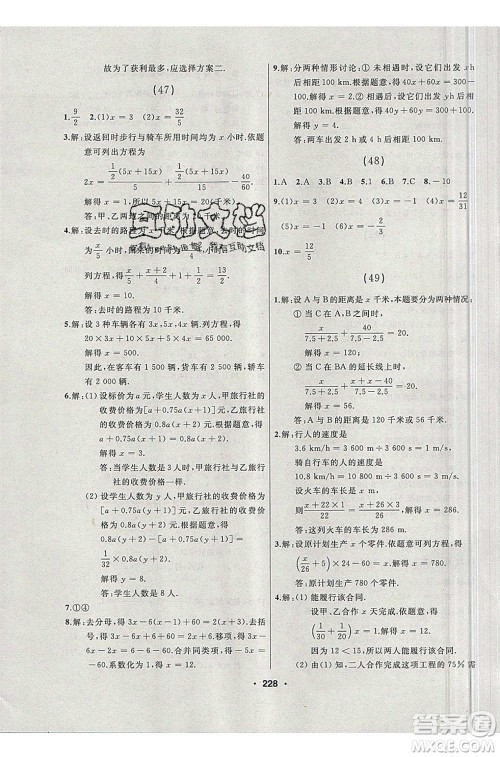 故为了获利最多,应选择方案二.
(47)
1. 9/2  2.(1)x=3  (2)x=32/5
3.解:设返回时步行与骑车所用时间均为 x 小时.依题
意可列出方程为
2x=½(5x+15x)/5+½(5x+15x)/15
解得 x=
答:甲、乙两
4.解:设去时的路
为 x/5 小时,回来
列方程,得 x/5+x/10+x/
解得 x=10.
答:去时的路程为 10 千米.
5.解:设 3 种车辆各有 3x,5x,4x.列方程,得
20×3x+10×5x+15×4x=85 000
解得 x=500
答:客车有 1 500 辆,货车有 2 500 辆,轿车有
2 000 辆.
6.解:(1)设标价为 a 元,学生人数为 x 人,甲旅行社的
收费价格为[a+0.75a(x+1)]元,乙旅行社的
收费价格为 0.8a(x+2)元.根据题意,得
a+0.75a(x+1)=0.8a(x+2).
解得 x=3.
答:当学生人数是 3 人时,甲旅行社与乙旅行
社的收费价格一样.
(2)设学生人数为 y 人,甲旅行社的收费价格为
[a+0.75a(y+1)]元,乙旅行社的收费价格为
0.8a(y+2)元.根据题意,得
½×3.2a(y+2)=a+0.75a(y+1).
解得 y=8.
答:学生人数是 8 人.
7.①④
8.解:去小括号,得 3x-6(x-1)=6-x-2.
去括号,得 3x-6x+6=6-x-2.移项,得 3x-
6x+x=6-2-6.合并同类项,得-2x=-2.系数化为 1,得 x=1.
9.解:分两种情形讨论:① 未相遇时,设它们出发 x h
后相距 100 km.根据题意,得 40x+60x=
300-100.解得 x=2.② 相遇后,设它们出发 y h
后相距 100 km.根据题意,得 60y+40y=300+
100.解得 y=4.
答:两车出发 2 h 或 4 h 后相距 100 km.
(48)
1.A  2.  3.B  4.  5.B  6.C  7.C  8.-10
9.(1)x=3  (2)x=  (3)x=12/31
(4)x=-
10.x=12/5
(49)
1.解:设 A 与 B 的距离是 x 千米.本题要分两种情况:
① 当 C 在 AB 之间时,
x/(7.5+2.5)+/(7.5-2.5)=20.
解得 x=120
② 当 C 在 BA 的延长线上时,
x/(7.5+2.5)+/(7.5-2.5)=20.
解得 x=56
答:A 与 B 的距离是 120 千米或 56 千米.
2.解:行人的速度是
3.6 km/h=3 600 m÷3 600 s=1 m/s
骑自行车的人的速度是
10.8 km/h=10 800 m÷3 600 s=3 m/s
设火车的车长是 x m.根据题意,得
(x+22×1)/22=(x+26×3)/26.解得 x=286.
答:这列火车的车长是 286 m.
3.解:设原计划生产 x 个零件.依题意可列方程为
(x/+5)×26=x+.解得 x=780.
答:原计划生产 780 个零件.
4.解:(1)能履行该合同.
设甲、乙合作 x 天完成.依题意,得
(1/30+1/20)x=1.解得 x=12<15.
答:两人能履行该合同.
(2)由(1)知,二人合作完成这项工程的 75% 需
• 228 •
答案圈
MXQE.COM